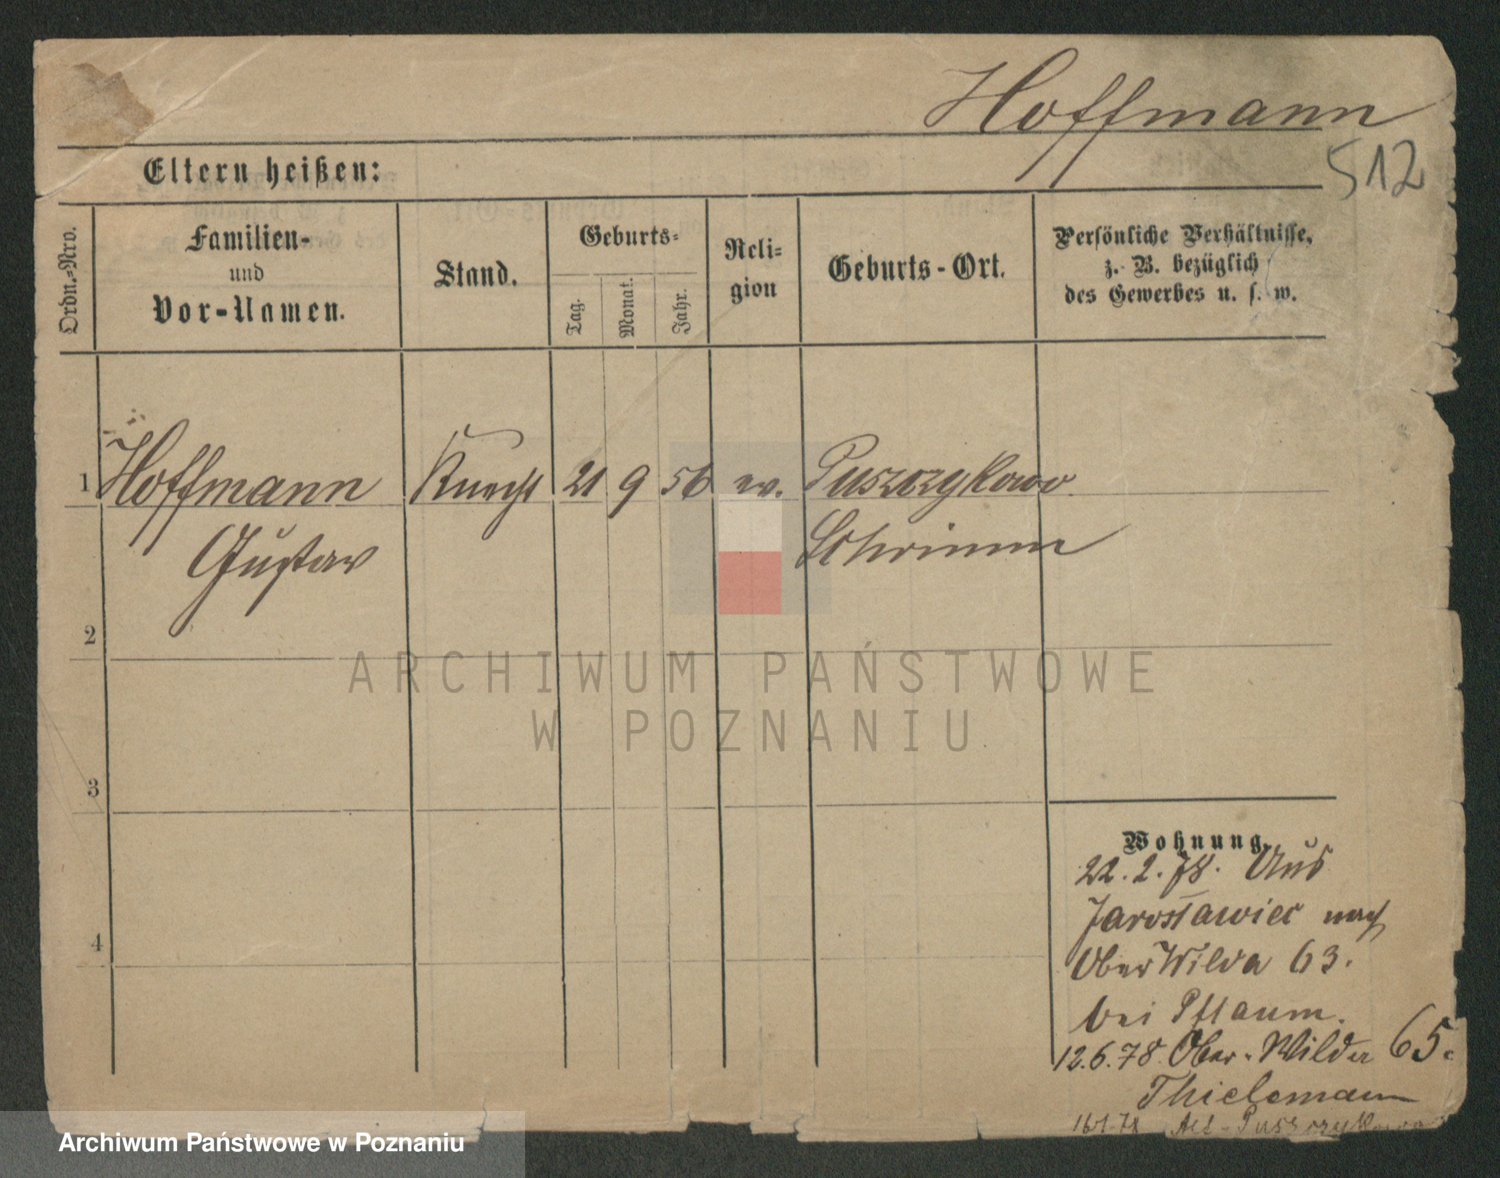 Hoffmann
512
Eltern heißen:
Ordn.-Nro.
Familien-
und
Vor-Namen.
Stand.
Geburts-
Tag.
Monat.
Jahr.
Reli-
gion
Geburts-Ort.
Persönliche Verhältnisse,
z. B. bezüglich
des Gewerbes u. s. w.
1 Hoffmann Knecht 21 9 56 ev. Puszczykowo
Gustav Schrimm
2
ARCHIWUM PAŃSTWOWE
W POZNANIU
3
Wohnung.
22.2.78. Aus
Jarosławiec nach
4
Ober Wilda 63.
bei Pflaum.
12.6.78. Ober-Wilda 65.
Thielemann
Alt-Puszczykowo
Archiwum Państwowe w Poznaniu